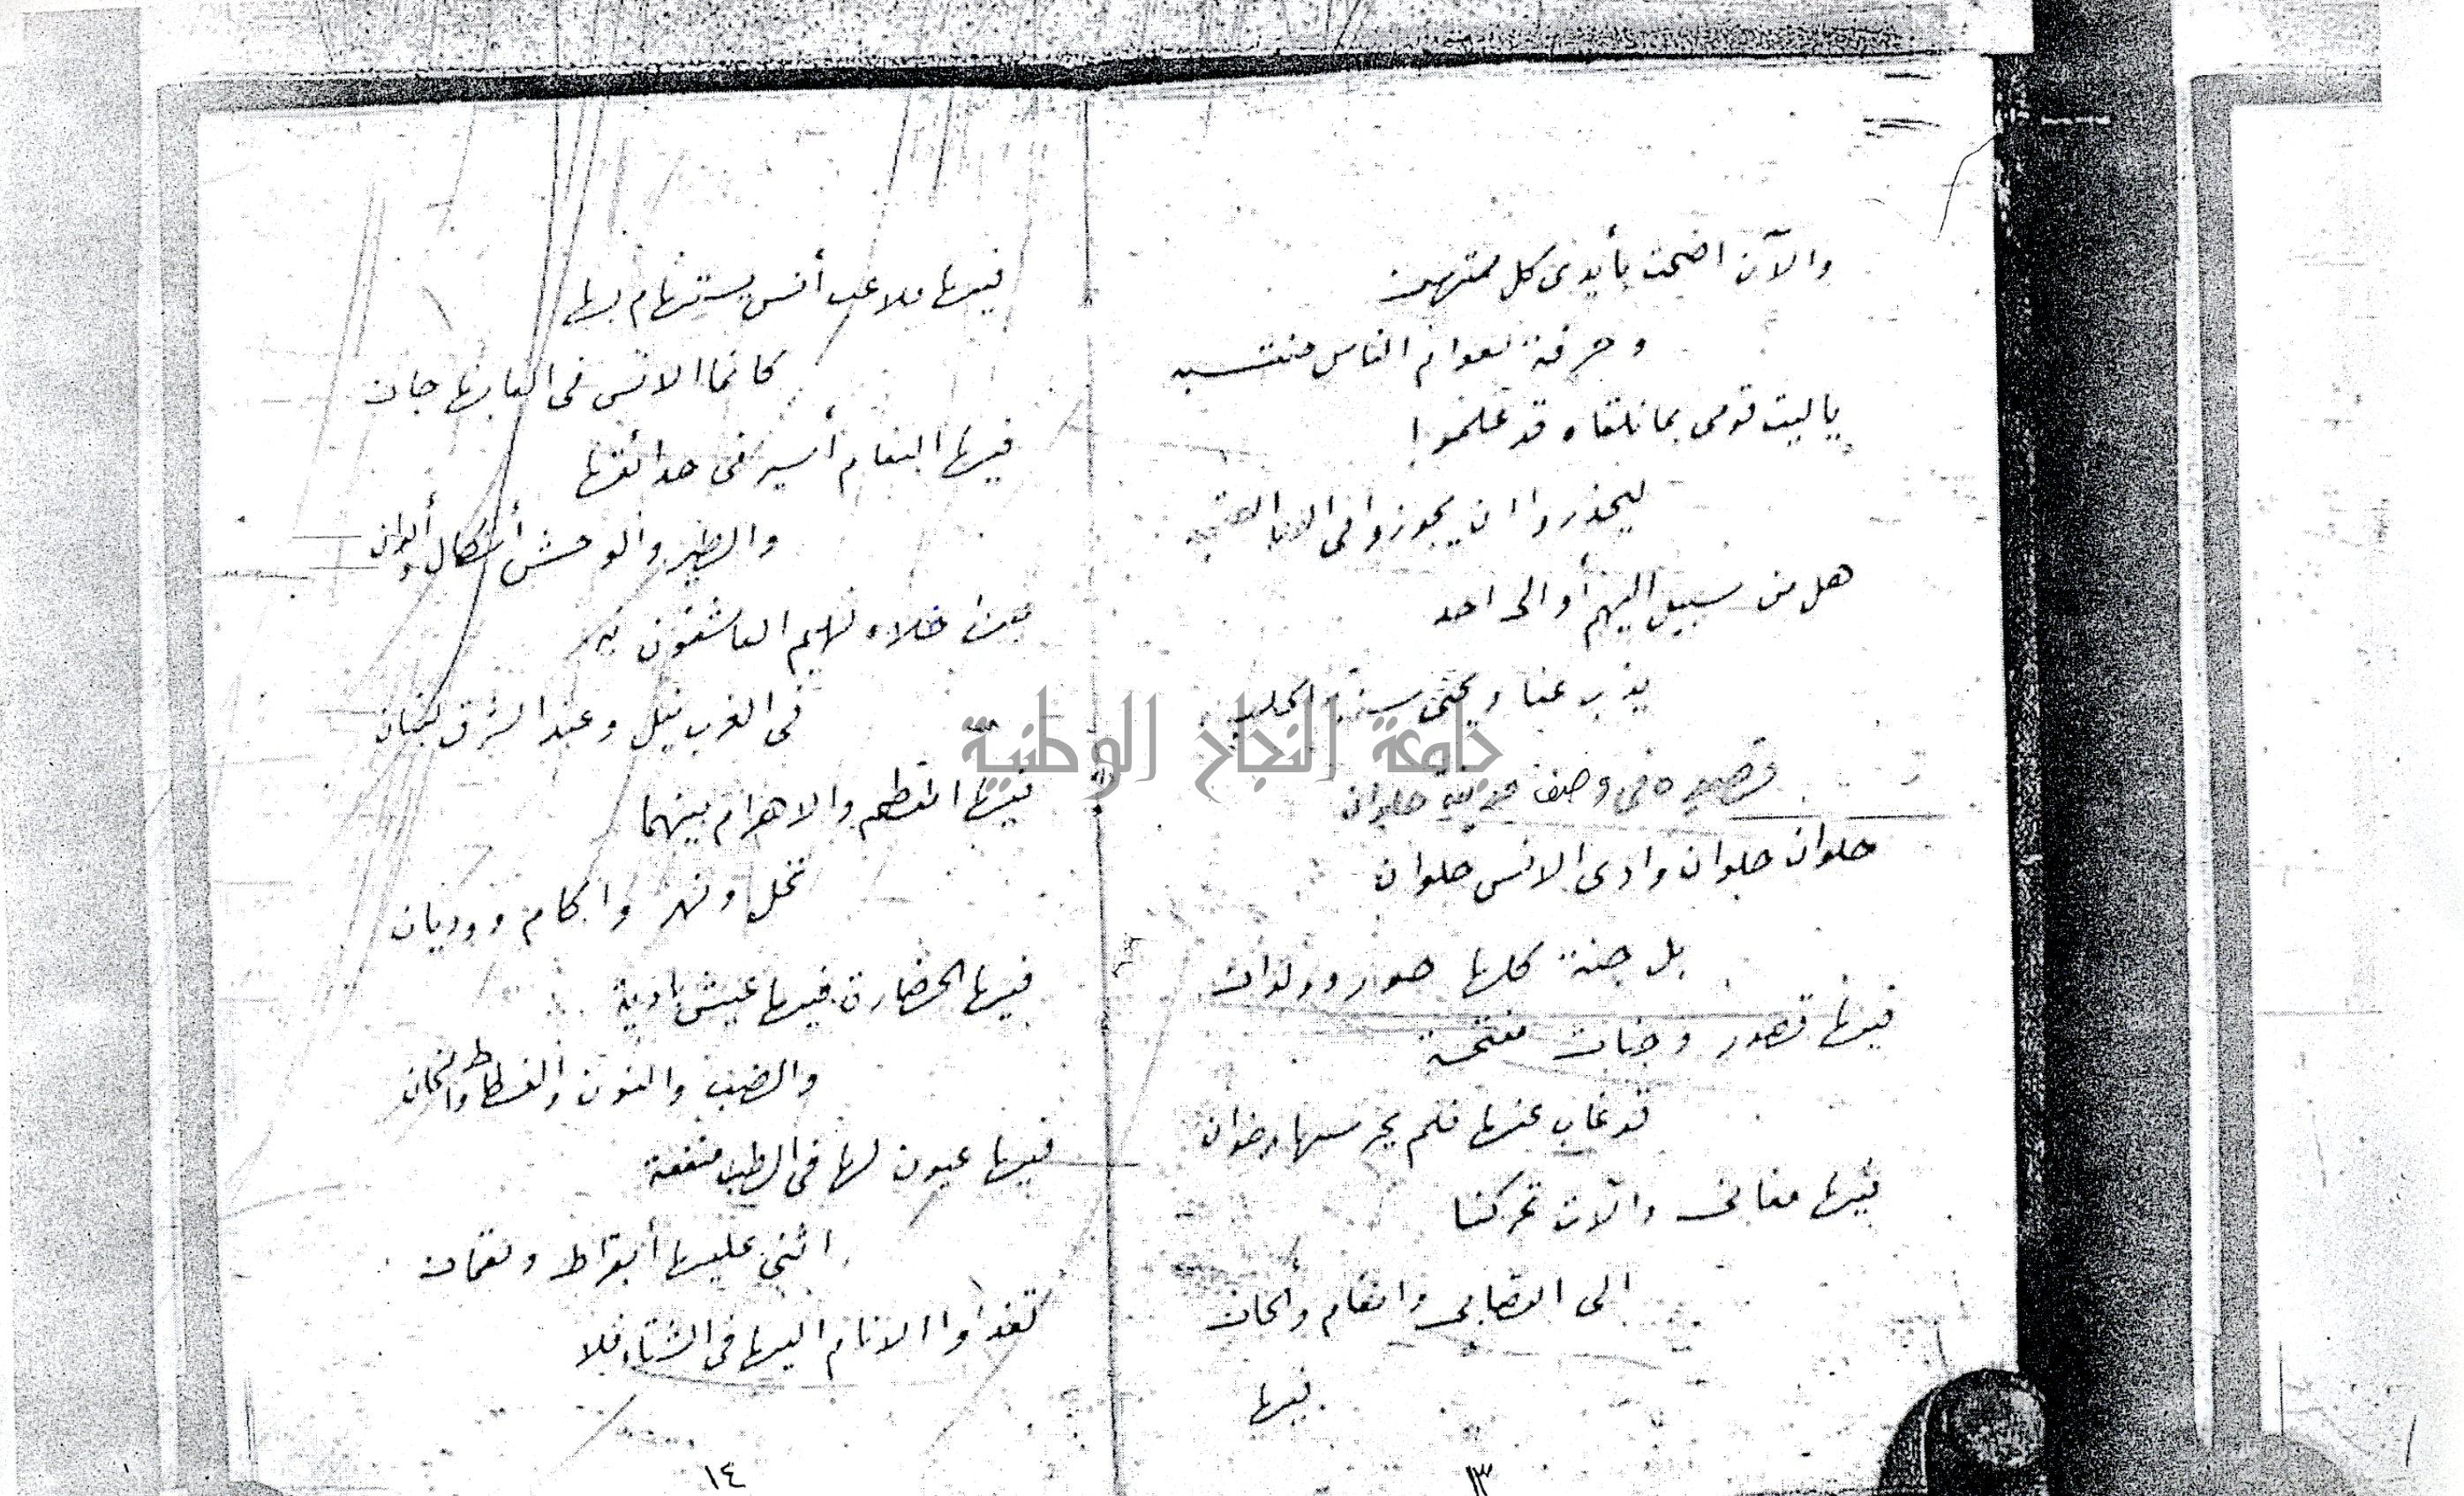 والآن اضحت بأيدى كل ممتهن
وحرفة لعوام الناس منتسبه
ياليت قومى بما نلقاه قد علموا
ليحذروا ان يجوزوا فى
هل من سبيل اليهم أو الى احد
يذب عنا
قصيده فى وصف مدينة حلوان
حلوان حلوان وادى الانس حلوان
بل جنة كلها حور وولدان
فيها قصور وجنات مفتحة
قد غاب عنها فلم يحرسها رضوان
فيها مغانى والآت تحركنا
الى التصابى وانغام وألحان
فيها
١٣
فيها ملاعب أنس يستهام بها
كانما الانس فى العابها جان
فيها النعام أسير فى حدائقها
والطير والوحش أشكال وألوان
خلاء تهيم العاشقون به
فى الغرب نيل وعند الشرق
فيها المقطم والاهرام بينهما
نخل ونهر واكام ووديان
فيها الحضارة فيها عيش بادية
والضب والنون والفسطاط والخان
فيها عيون لها فى الطب منفعة
اثنى عليها أبقراط ولقمان
تغدوا الانام اليها فى الشتاء فلا
١٤
جامعة النجاح الوطنية